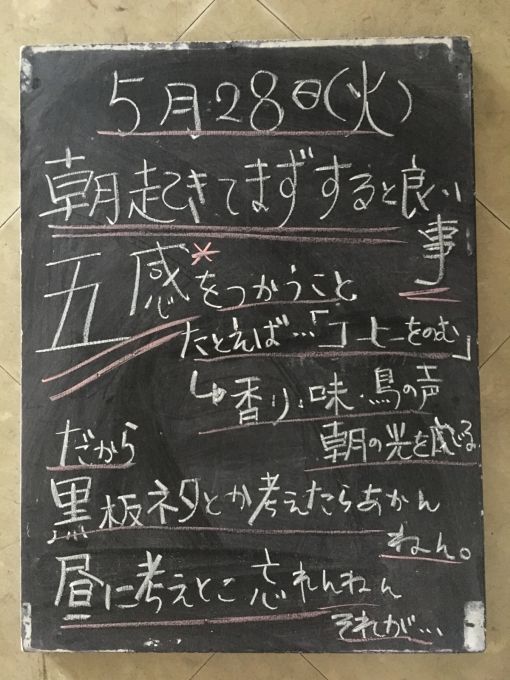 5月28日(火)
朝起きてまずすると良い
事
五感*をつかうこと
たとえば…「コーヒーをのむ」
↳香り・味・鳥の声
朝の光を感じる
だから
黒板ネタとか考えたらあかん
ねん。
昼に考えとこ 忘れんねん
それが…